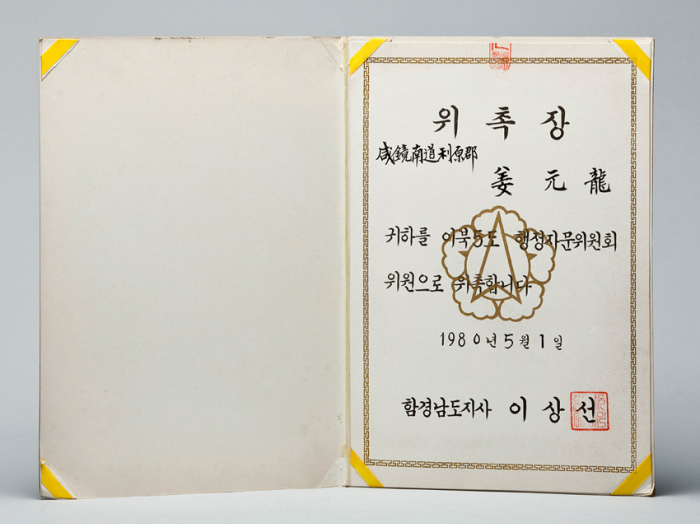 위촉장
咸鏡南道利原郡
姜元龍
귀하를 이북5도 행정자문위원회
위원으로 위촉합니다
1980년 5월 1일
함경남도지사 이상선